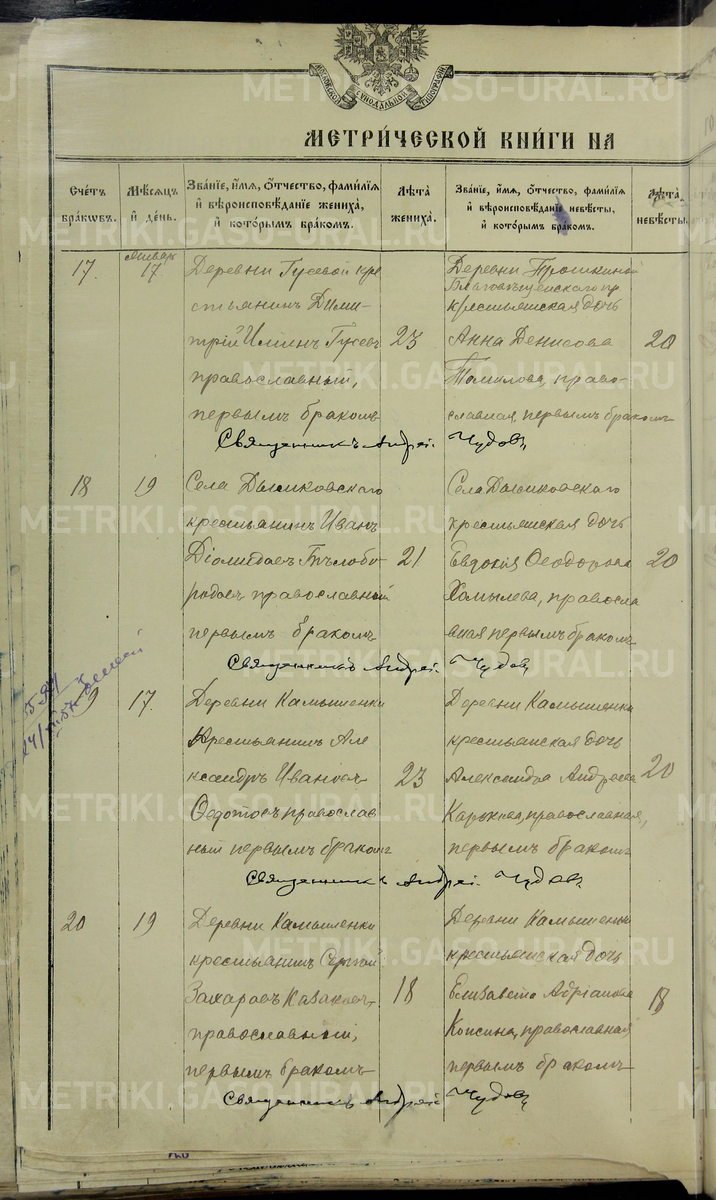 МОСКОВСКОЙ СѴНОДАЛЬНОЙ ТИПОГРАФІИ
МЕТРИ́ЧЕСКОЙ КНИ́ГИ НА
Сче́тъ бра́кωвъ.
Мѣ́сяцъ и҆ де́нь.
Зва́нїе, и҆́мѧ, ѻ҆́тчество, фами́лїѧ и҆ вѣроисповѣ́данїе жениха̀, и҆ кото́рымъ бра́комъ.
Лѣ́та жениха̀.
Зва́нїе, и҆́мѧ, ѻ҆́тчество, фами́лїѧ и҆ вѣроисповѣ́данїе невѣ́сты, и҆ кото́рымъ бра́комъ.
Лѣ́та невѣ́сты.
17.
Январь
17
Деревни Гусевой кре
стьянинъ Дими-
трій Гусевъ
православный,
первымъ бракомъ
23
Деревни Трошкиной
Благовѣщенскаго пр.
крестьянская дочь
Анна Денисова
Томилова, право-
славная, первымъ бракомъ
20
Священникъ Андрей Чудовъ
18
19
Села
крестьянинъ Иванъ
Діомидовъ Бѣлобо-
родовъ православный
первымъ бракомъ
21
Села
крестьянская дочь
Евдокія Ѳеодорова
Хомылева, правосла
вная первымъ бракомъ
20
Священникъ Андрей Чудовъ
9
17.
Деревни Камышенки
Крестьянинъ Але
ксандръ Ивановъ
Ѳедотовъ православ
ный первымъ бракомъ
23
Деревни Камышенки
крестьянская дочь
Александра Андреева
православная,
первымъ бракомъ
20
Священникъ Андрей Чудовъ
20
19
Деревни Камышенки
крестьянинъ Сергѣй
Захаровъ Казаковъ,
православный,
первымъ бракомъ
18
Деревни Камышенки
крестьянская дочь
Елизавета
Копсина, православная
первымъ бракомъ
18
Священникъ Андрей Чудовъ
METRIKI.GASO-URAL.RU